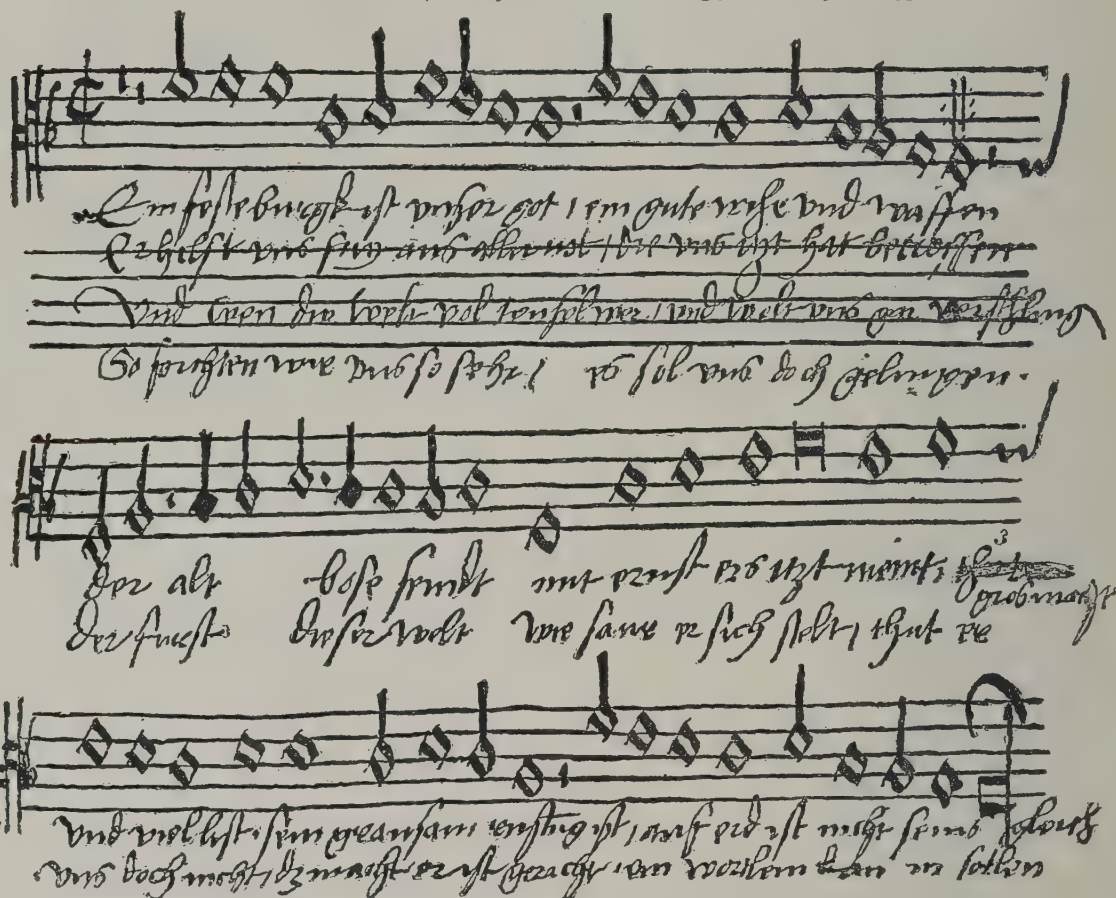 Ein feste burgk ist unser got / ein gute wehr und waffen
Er hilft uns frey aus aller not / die uns itzt hat betroffen
Und wen die welt vol teufel wer / und wolt uns gar verschling
So forchten wir uns so sehr / es sol uns doch gelingen.
der alt bose feindt mit ernst ers itzt meint,
der furst dieser welt wie saur er sich stelt / thut er
3
gros macht
und viel list sein grausam rustung ist / auf erd ist nicht seins gleich
uns doch nicht / dz macht er ist gericht ein wortlein kan in fellen